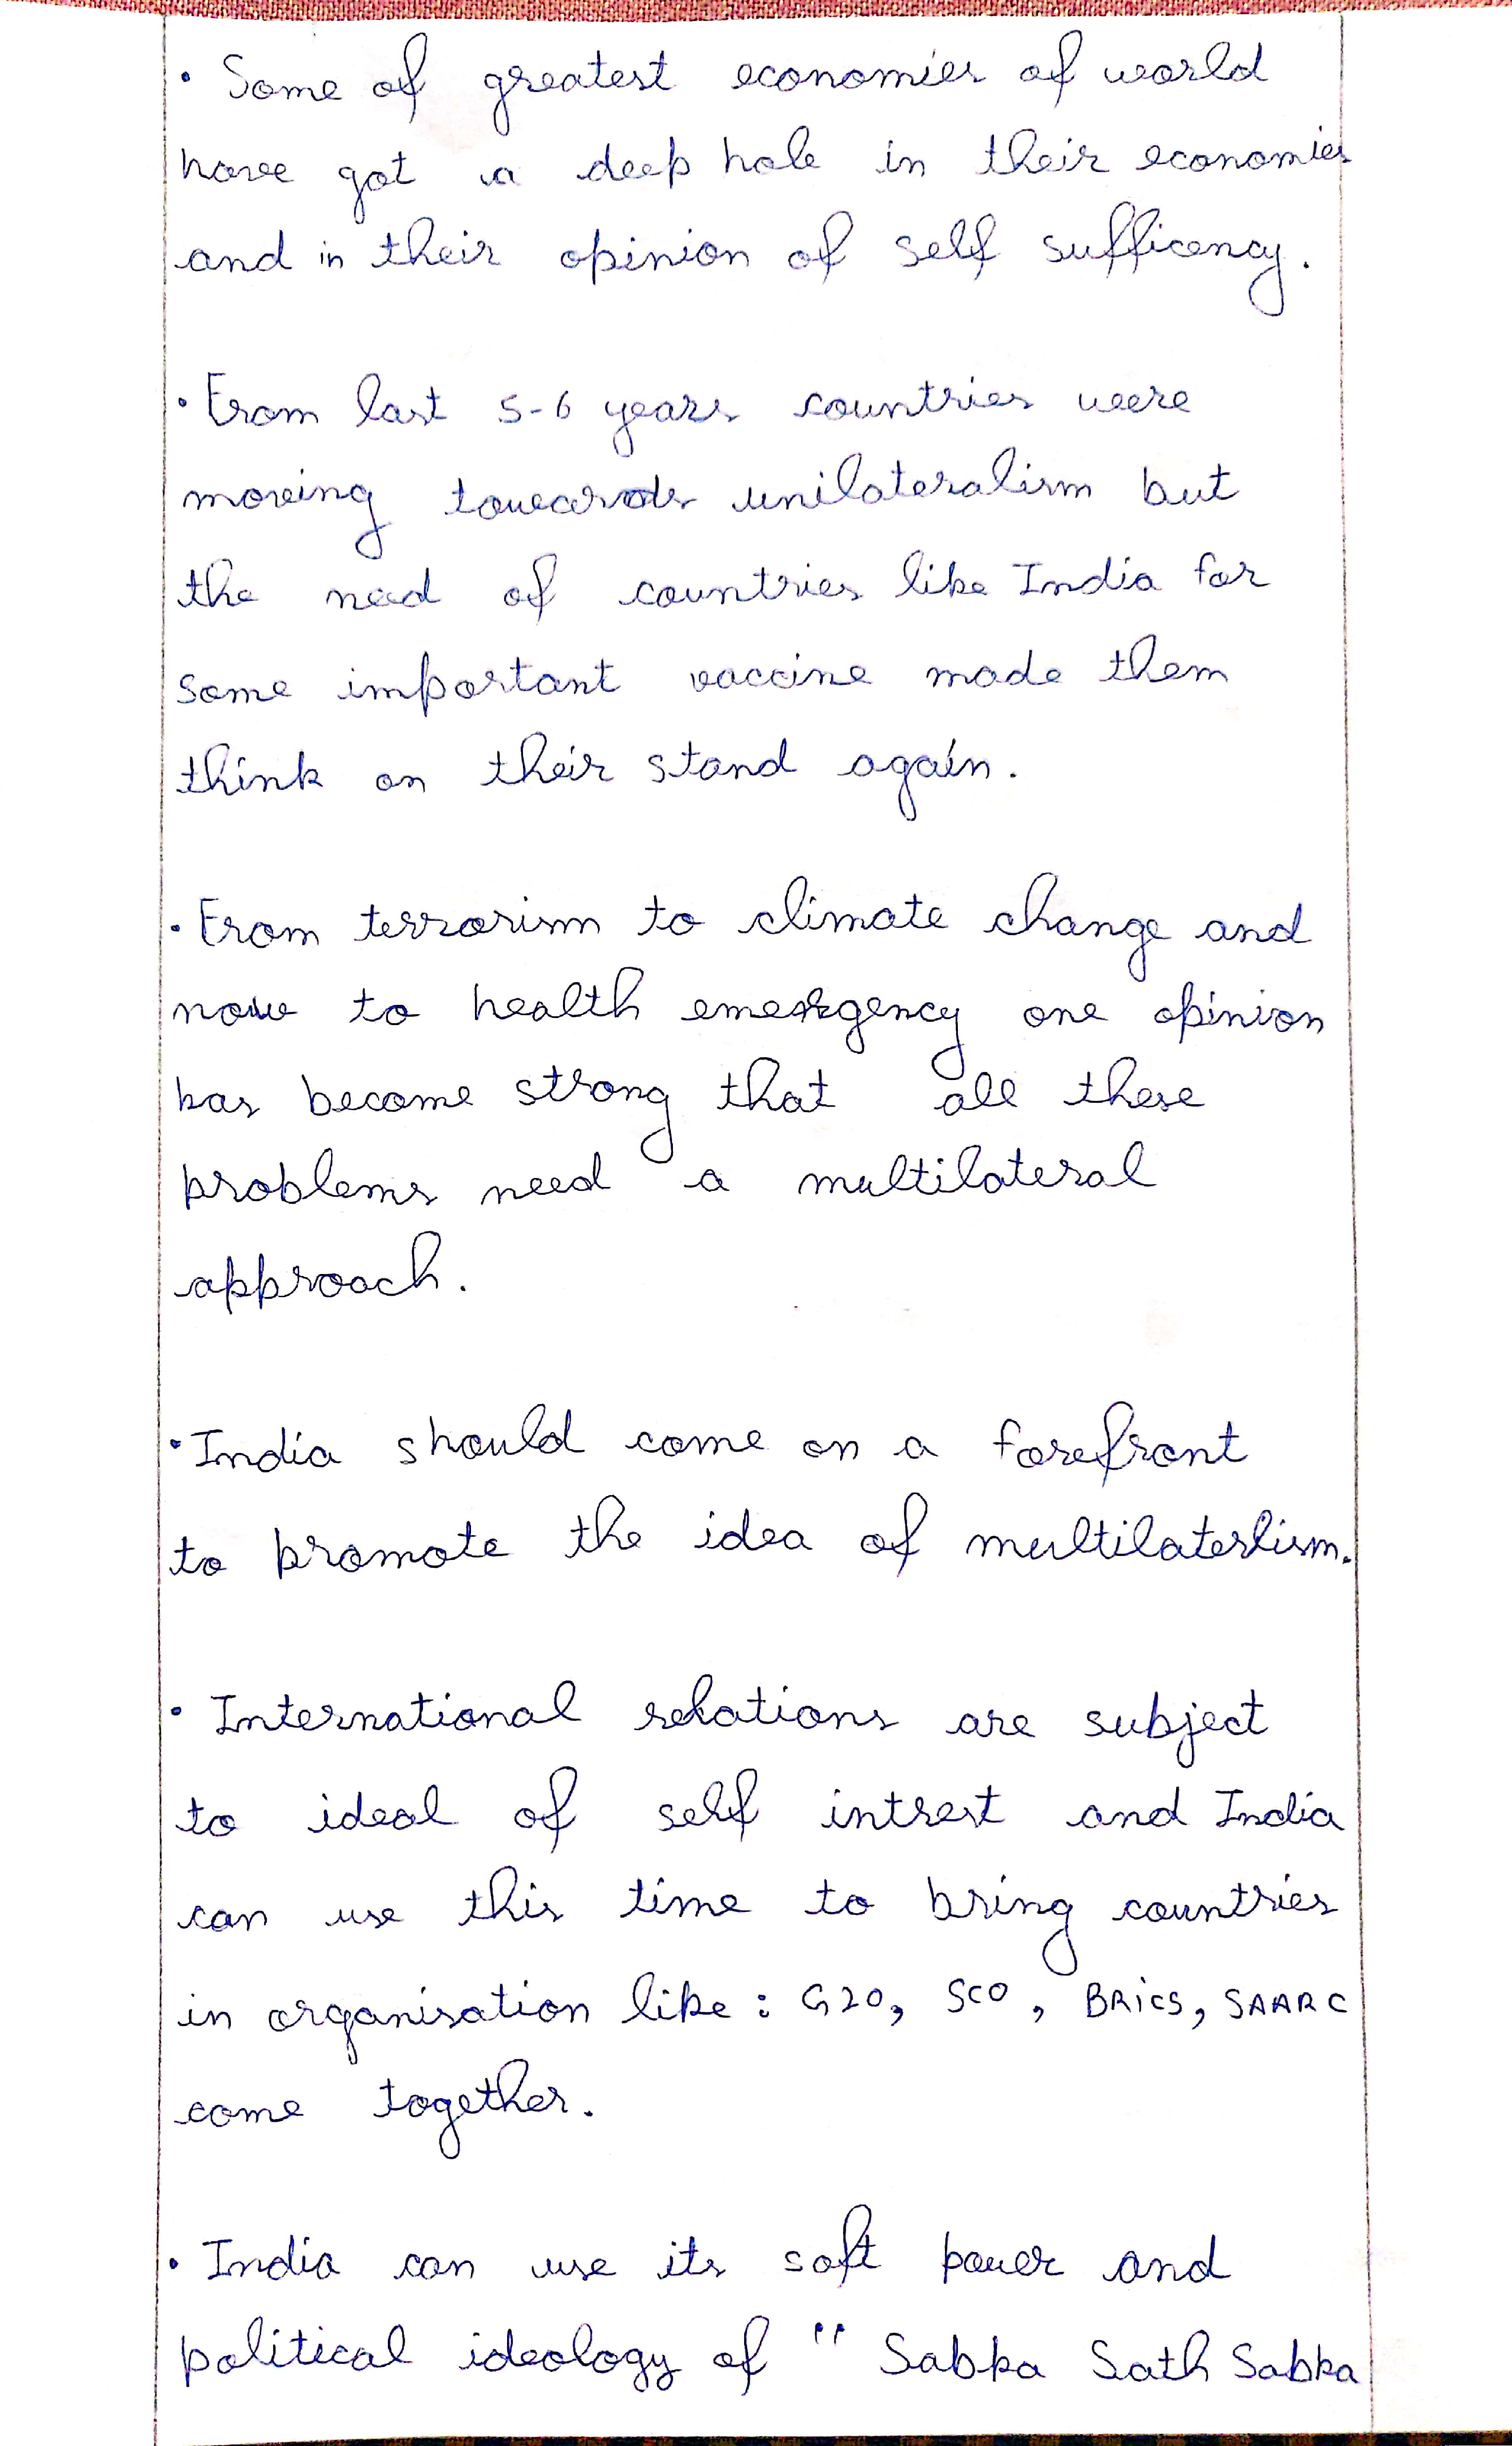 • Some of greatest economies of world
have got a deep hole in their economies
and in their opinion of self sufficency.
• From last 5-6 years countries were
moving towards unilateralism but
the need of countries like India for
some important vaccine made them
think on their stand again.
• From terrorism to climate change and
now to health emergency one opinion
has become strong that all these
problems need a multilateral
approach.
• India should come on a forefront
to promote the idea of multilaterlism.
• International relations are subject
to ideal of self intrest and India
can use this time to bring countries
in organisation like : G20, SCO, BRICS, SAARC
come together.
• India can use its soft power and
political ideology of " Sabka Sath Sabka